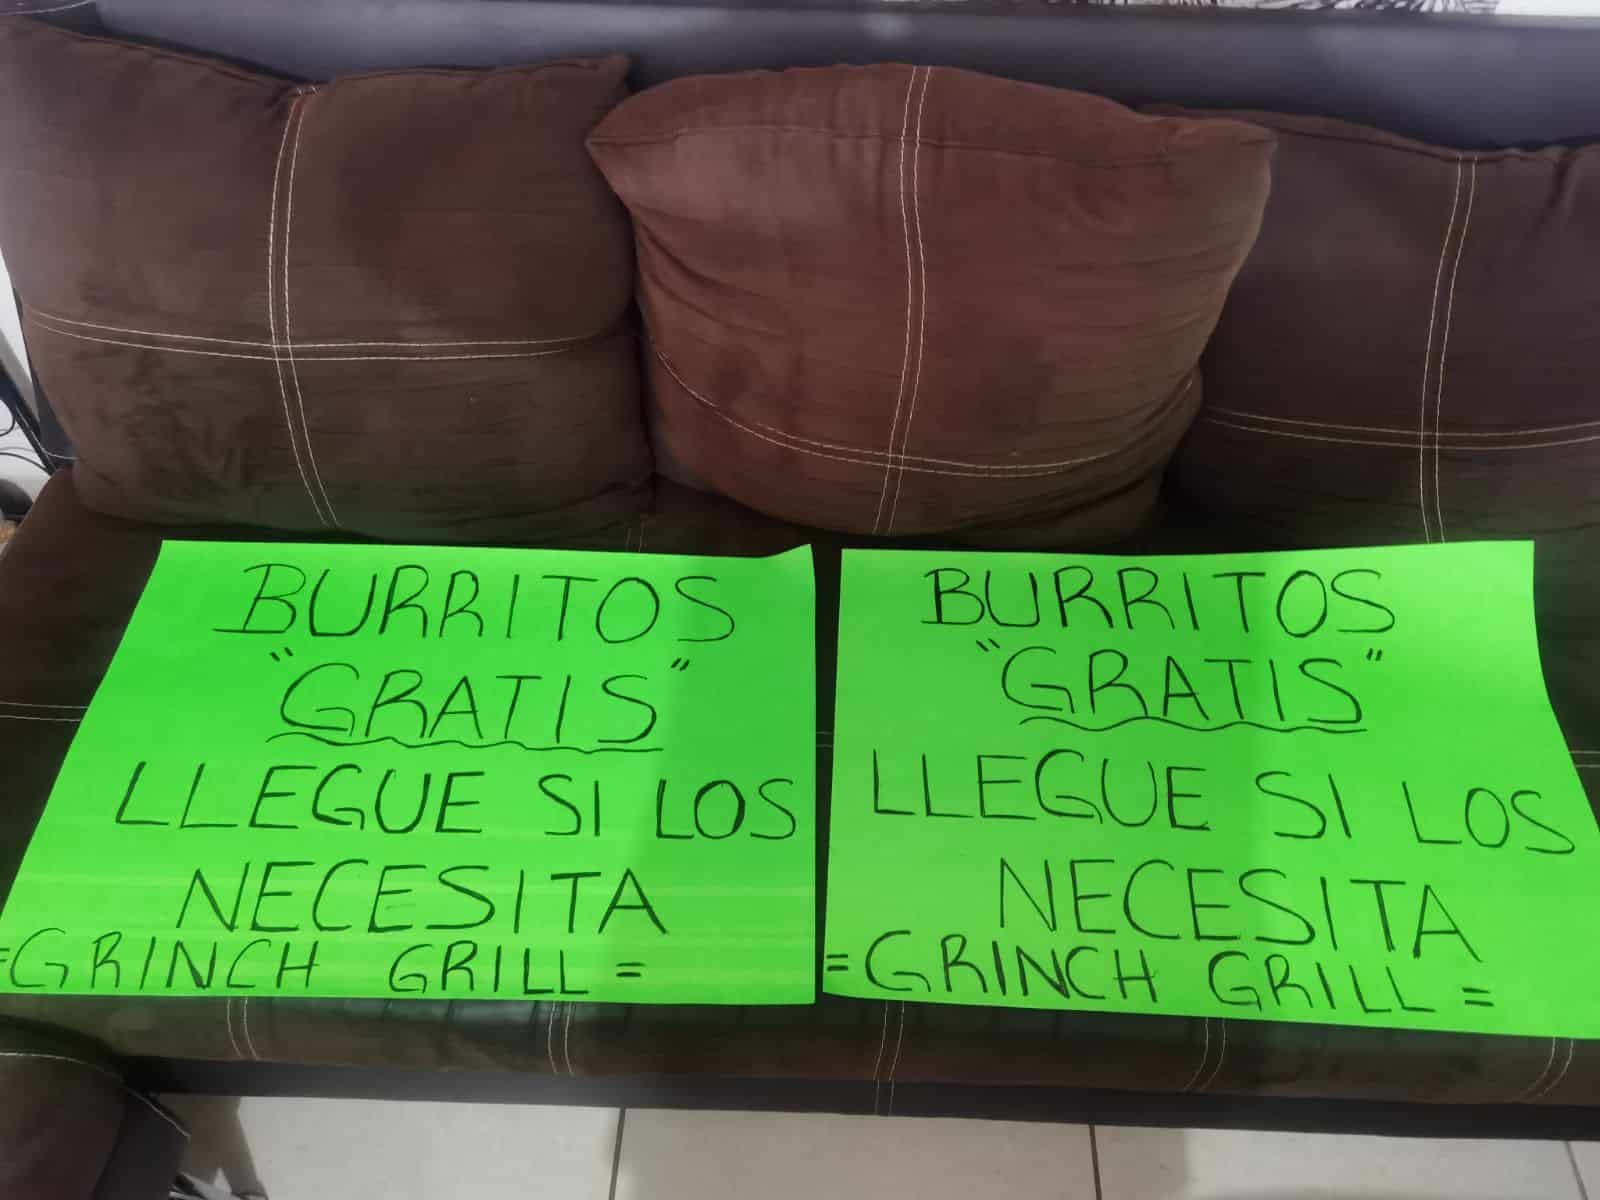 BURRITOS
"GRATIS"
LLEGUE SI LOS
NECESITA
=GRINCH GRILL=
BURRITOS
"GRATIS"
LLEGUE SI LOS
NECESITA
=GRINCH GRILL=